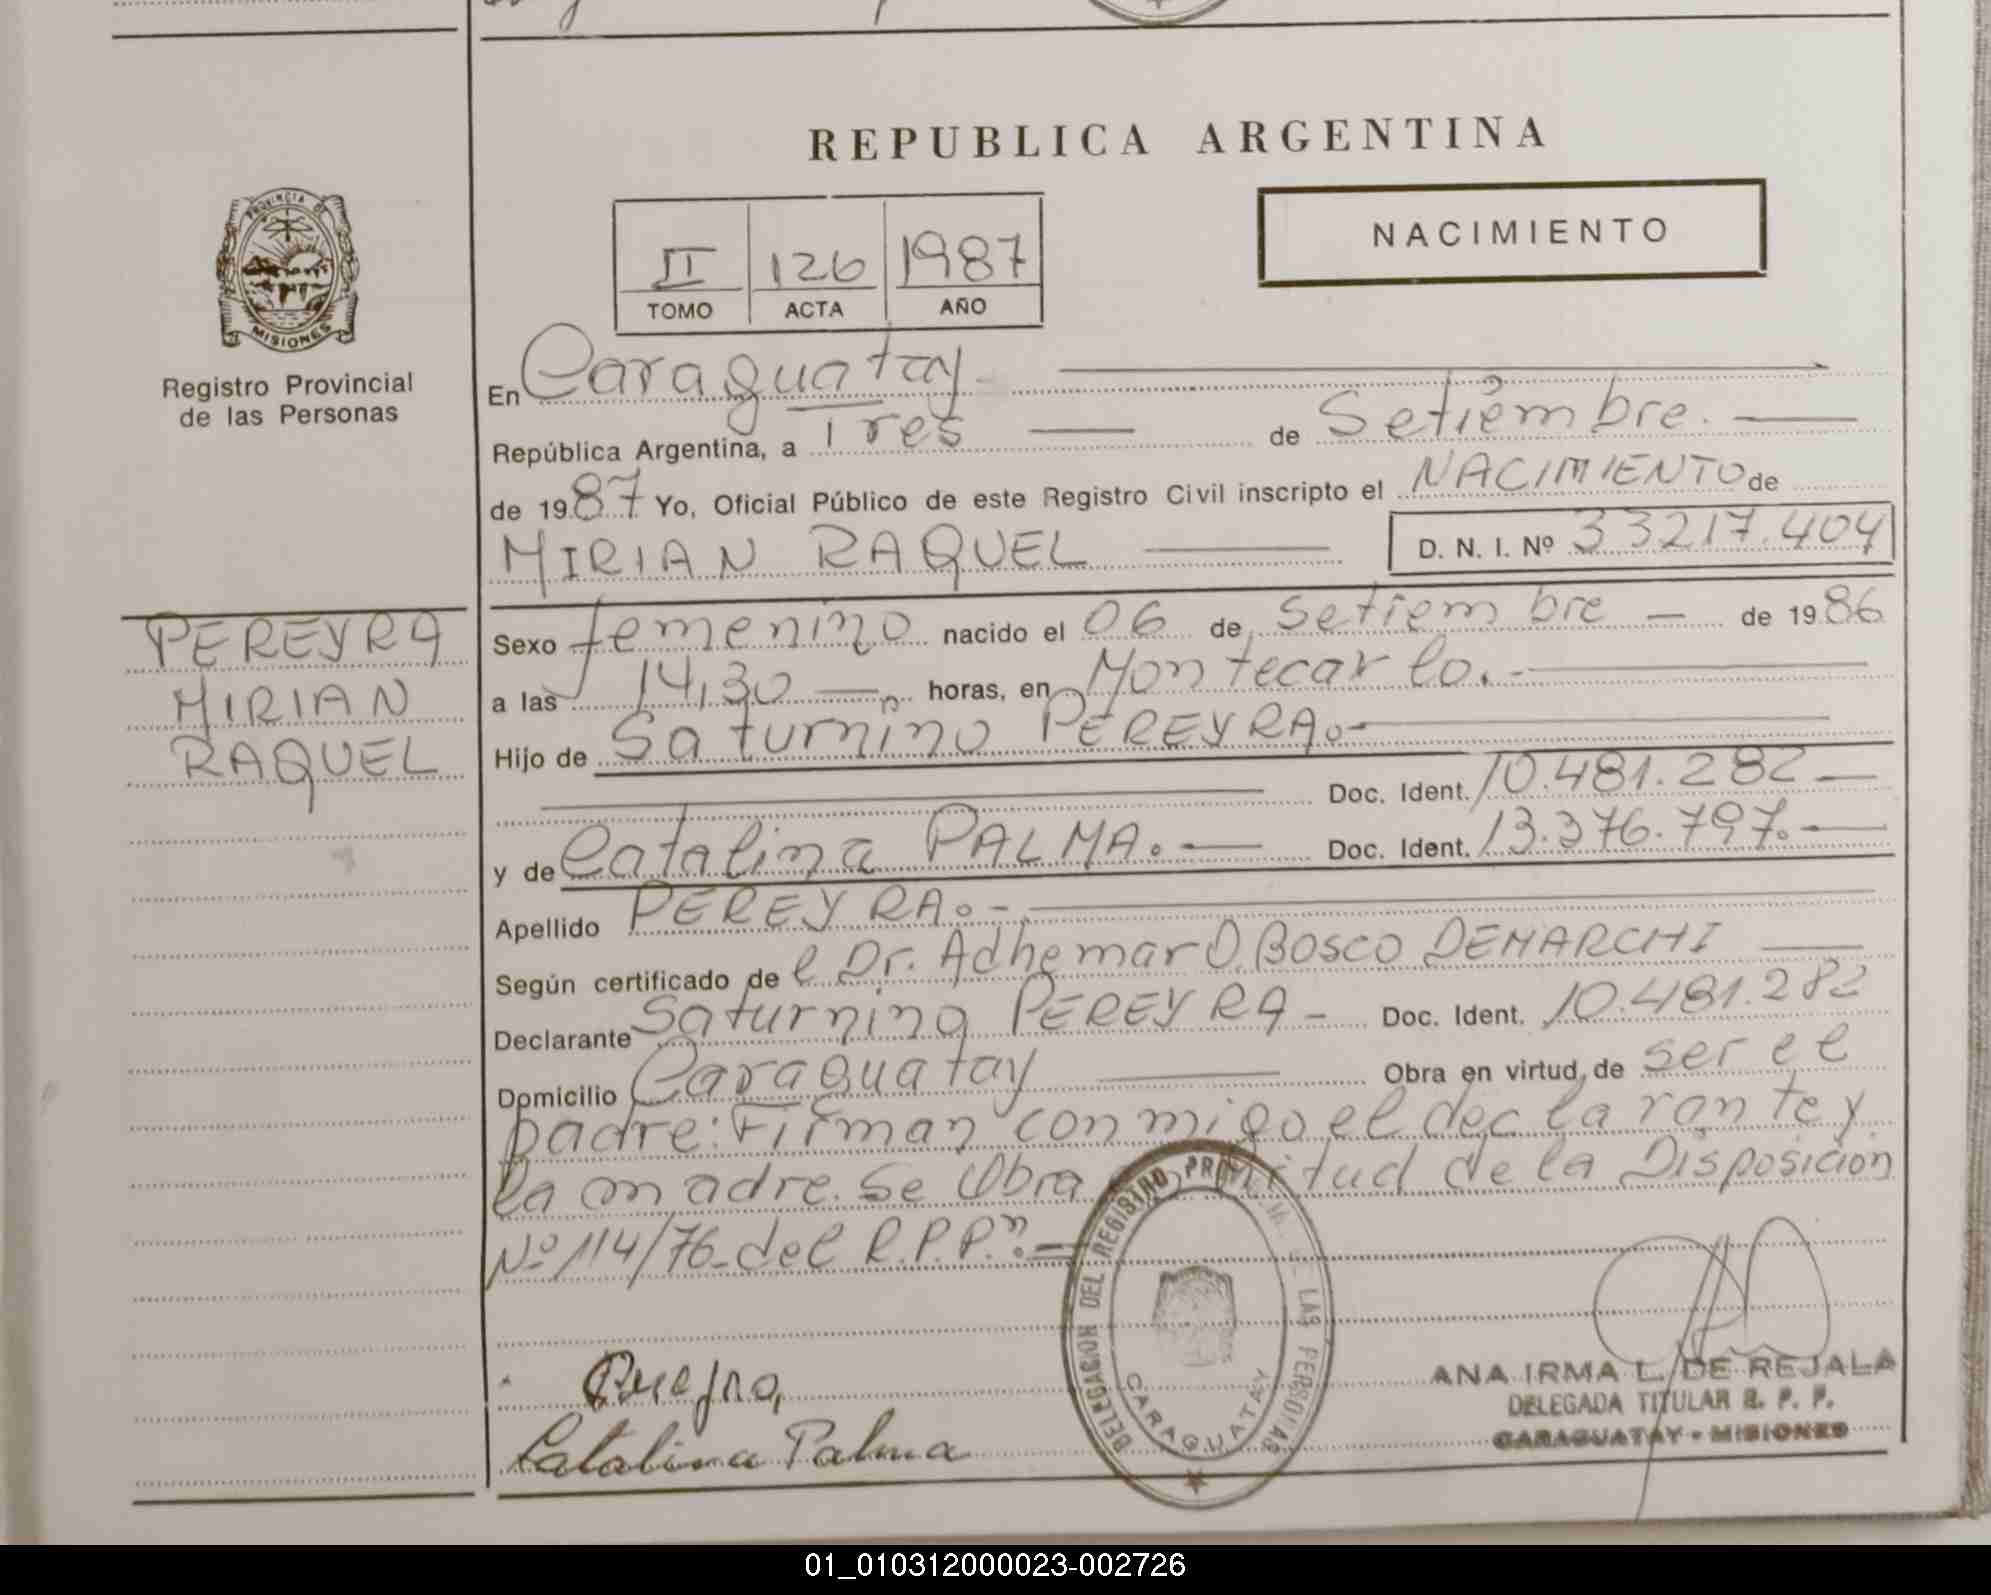 REPUBLICA ARGENTINA
PROVINCIA DE
MISIONES
Registro Provincial
de las Personas
II 126 1987
TOMO ACTA AÑO
NACIMIENTO
En Caraguatay
República Argentina, a Tres de Setiembre.
de 1987 Yo, Oficial Público de este Registro Civil inscripto el NACIMIENTO de
MIRIAN RAQUEL D. N. I. Nº 33217.404
PEREYRA
MIRIAN
RAQUEL
Sexo femenino nacido el 06 de Setiembre — de 1986
a las 14,30 — horas, en Montecarlo.-
Hijo de Saturnino PEREYRA.-
Doc. Ident. 10.481.282 —
y de Catalina PALMA. — Doc. Ident. 13.376.797. —
Apellido PEREYRA.-
Según certificado de l Dr. Adhemar D. BOSCO DEMARCHI —
Declarante Saturnino PEREYRA - Doc. Ident. 10.481.282
Domicilio Caraguatay — Obra en virtud de ser el
padre: Firman conmigo el declarante y
la madre. Se Obra en virtud de la Disposición
Nº 114/76 del R.P.Pⁿ.-
DELEGACION DEL REGISTRO PROVINCIAL DE LAS PERSONAS
CARAGUATAY
Catalina Palma
ANA IRMA L. DE REJALA
DELEGADA TITULAR R. P. P.
CARAGUATAY - MISIONES
01_010312000023-002726